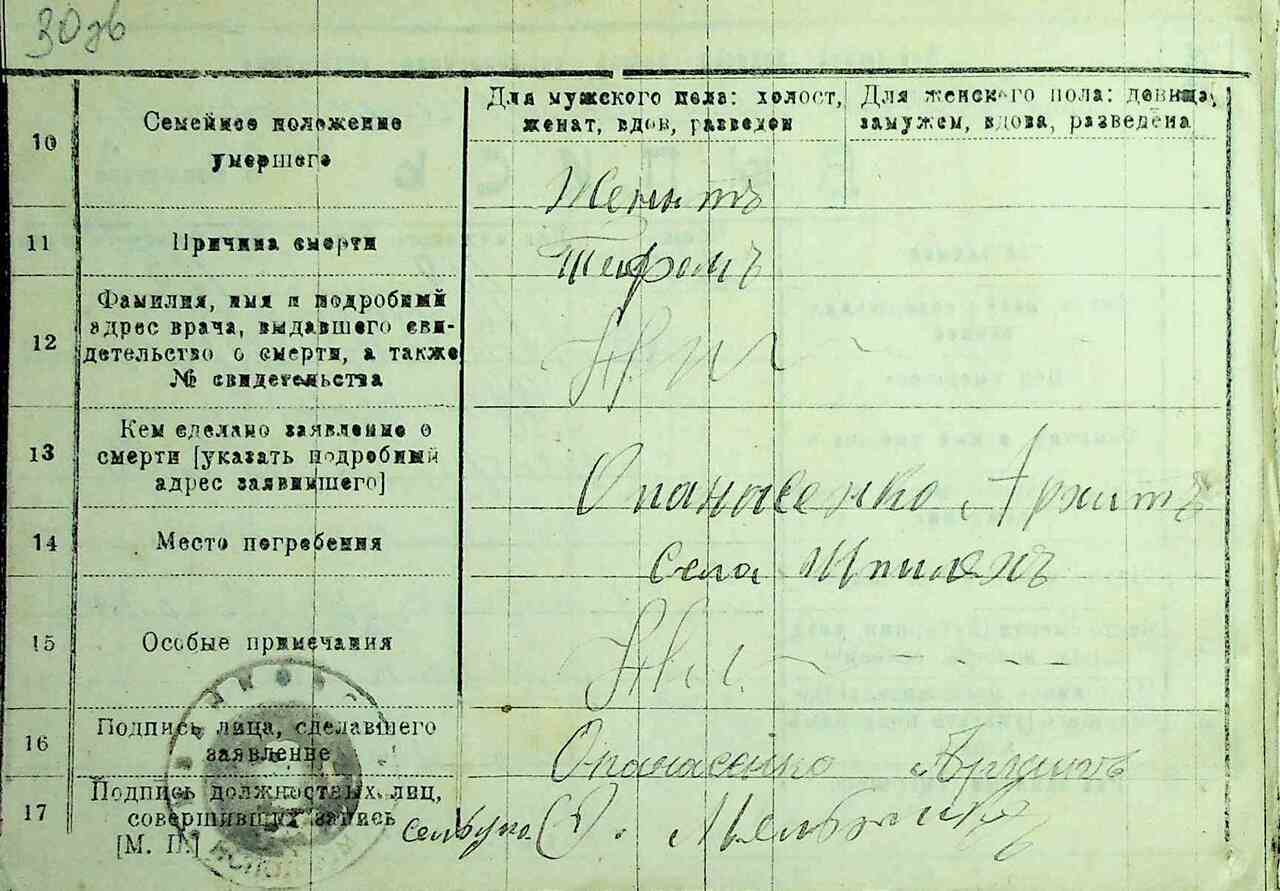 30зв
Для мужского пола: холост, женат, вдов, разведен
Для женского пола: девица, замужем, вдова, разведена
10
Семейное положение
умершего
Женатъ
11
Причина смерти
Тифомъ
12
Фамилия, имя и подробный
адрес врача, выдавшего сви-
детельство о смерти, а также
№ свидетельства
13
Кем сделано заявление о
смерти [указать подробный
адрес заявившего]
Опанасенко Архипъ
14
Место погребения
села Шпиляхъ
15
Особые примечания
16
Подпись лица, сделавшего
заявление
Опанасенко Архипъ
17
Подпись должностных лиц,
совершивших запись
[М. П.]